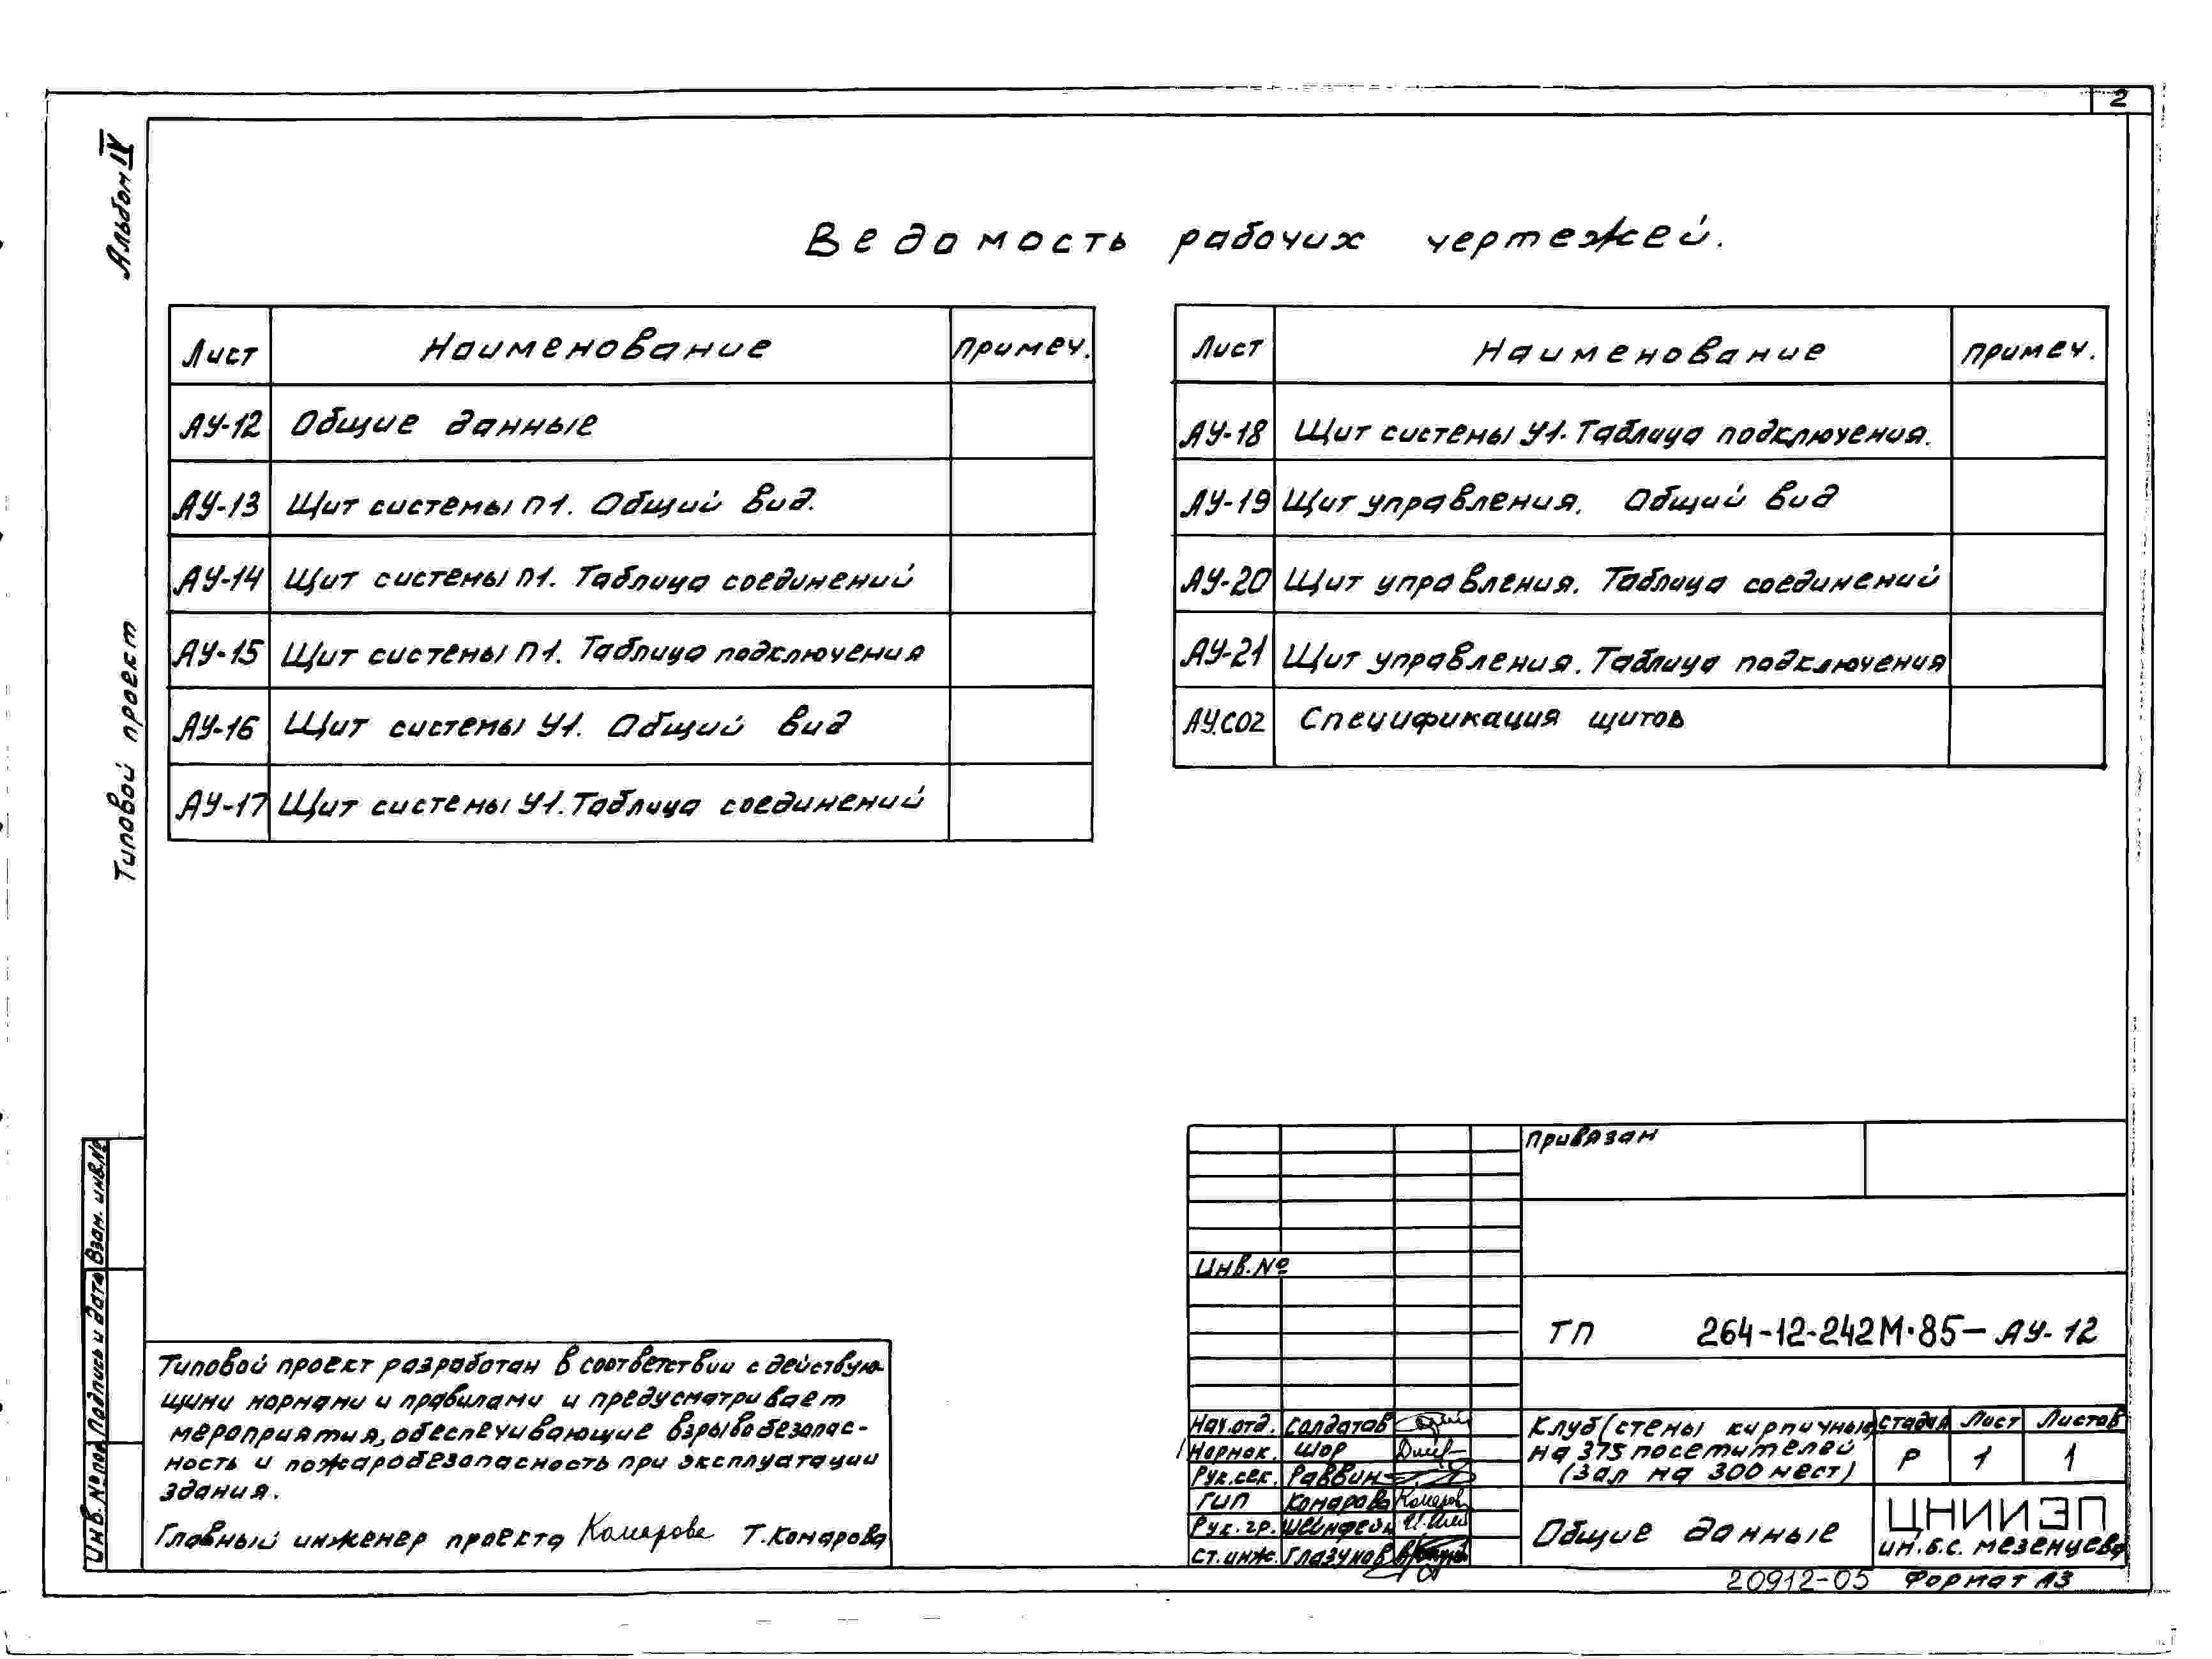 2
Альбом IV
Типовой проект
Ведомость рабочих чертежей.
Лист Наименование Примеч.
АУ-12 Общие данные
АУ-13 Щит системы П1. Общий вид.
АУ-14 Щит системы П1. Таблица соединений
АУ-15 Щит системы П1. Таблица подключения
АУ-16 Щит системы У1. Общий вид
АУ-17 Щит системы У1. Таблица соединений
Лист Наименование Примеч.
АУ-18 Щит системы У1. Таблица подключения.
АУ-19 Щит управления. Общий вид
АУ-20 Щит управления. Таблица соединений
АУ-21 Щит управления. Таблица подключения
АУ.СО2 Спецификация щитов
Взам. инв.№
Подпись и дата
Инв. № подл
Типовой проект разработан в соответствии с действую-
щими нормами и правилами и предусматривает
мероприятия, обеспечивающие взрывобезопас-
ность и пожаробезопасность при эксплуатации
здания.
Главный инженер проекта Комарова Т. Комарова
Привязан
Инв.№
ТП 264-12-242М.85-АУ-12
Нач.отд. Солдатов
Нормок. Шор
Рук.сек. Раввин
ГИП Комарова Комаров
Рук.гр. Шейнфейн
Ст.инж. Глазунов
Клуб (стены кирпичные)
на 375 посетителей
(зал на 300 мест)
Стадия Лист Листов
Р 1 1
Общие данные
ЦНИИЭП
им. Б.С. Мезенцева
20912-05 Формат А3